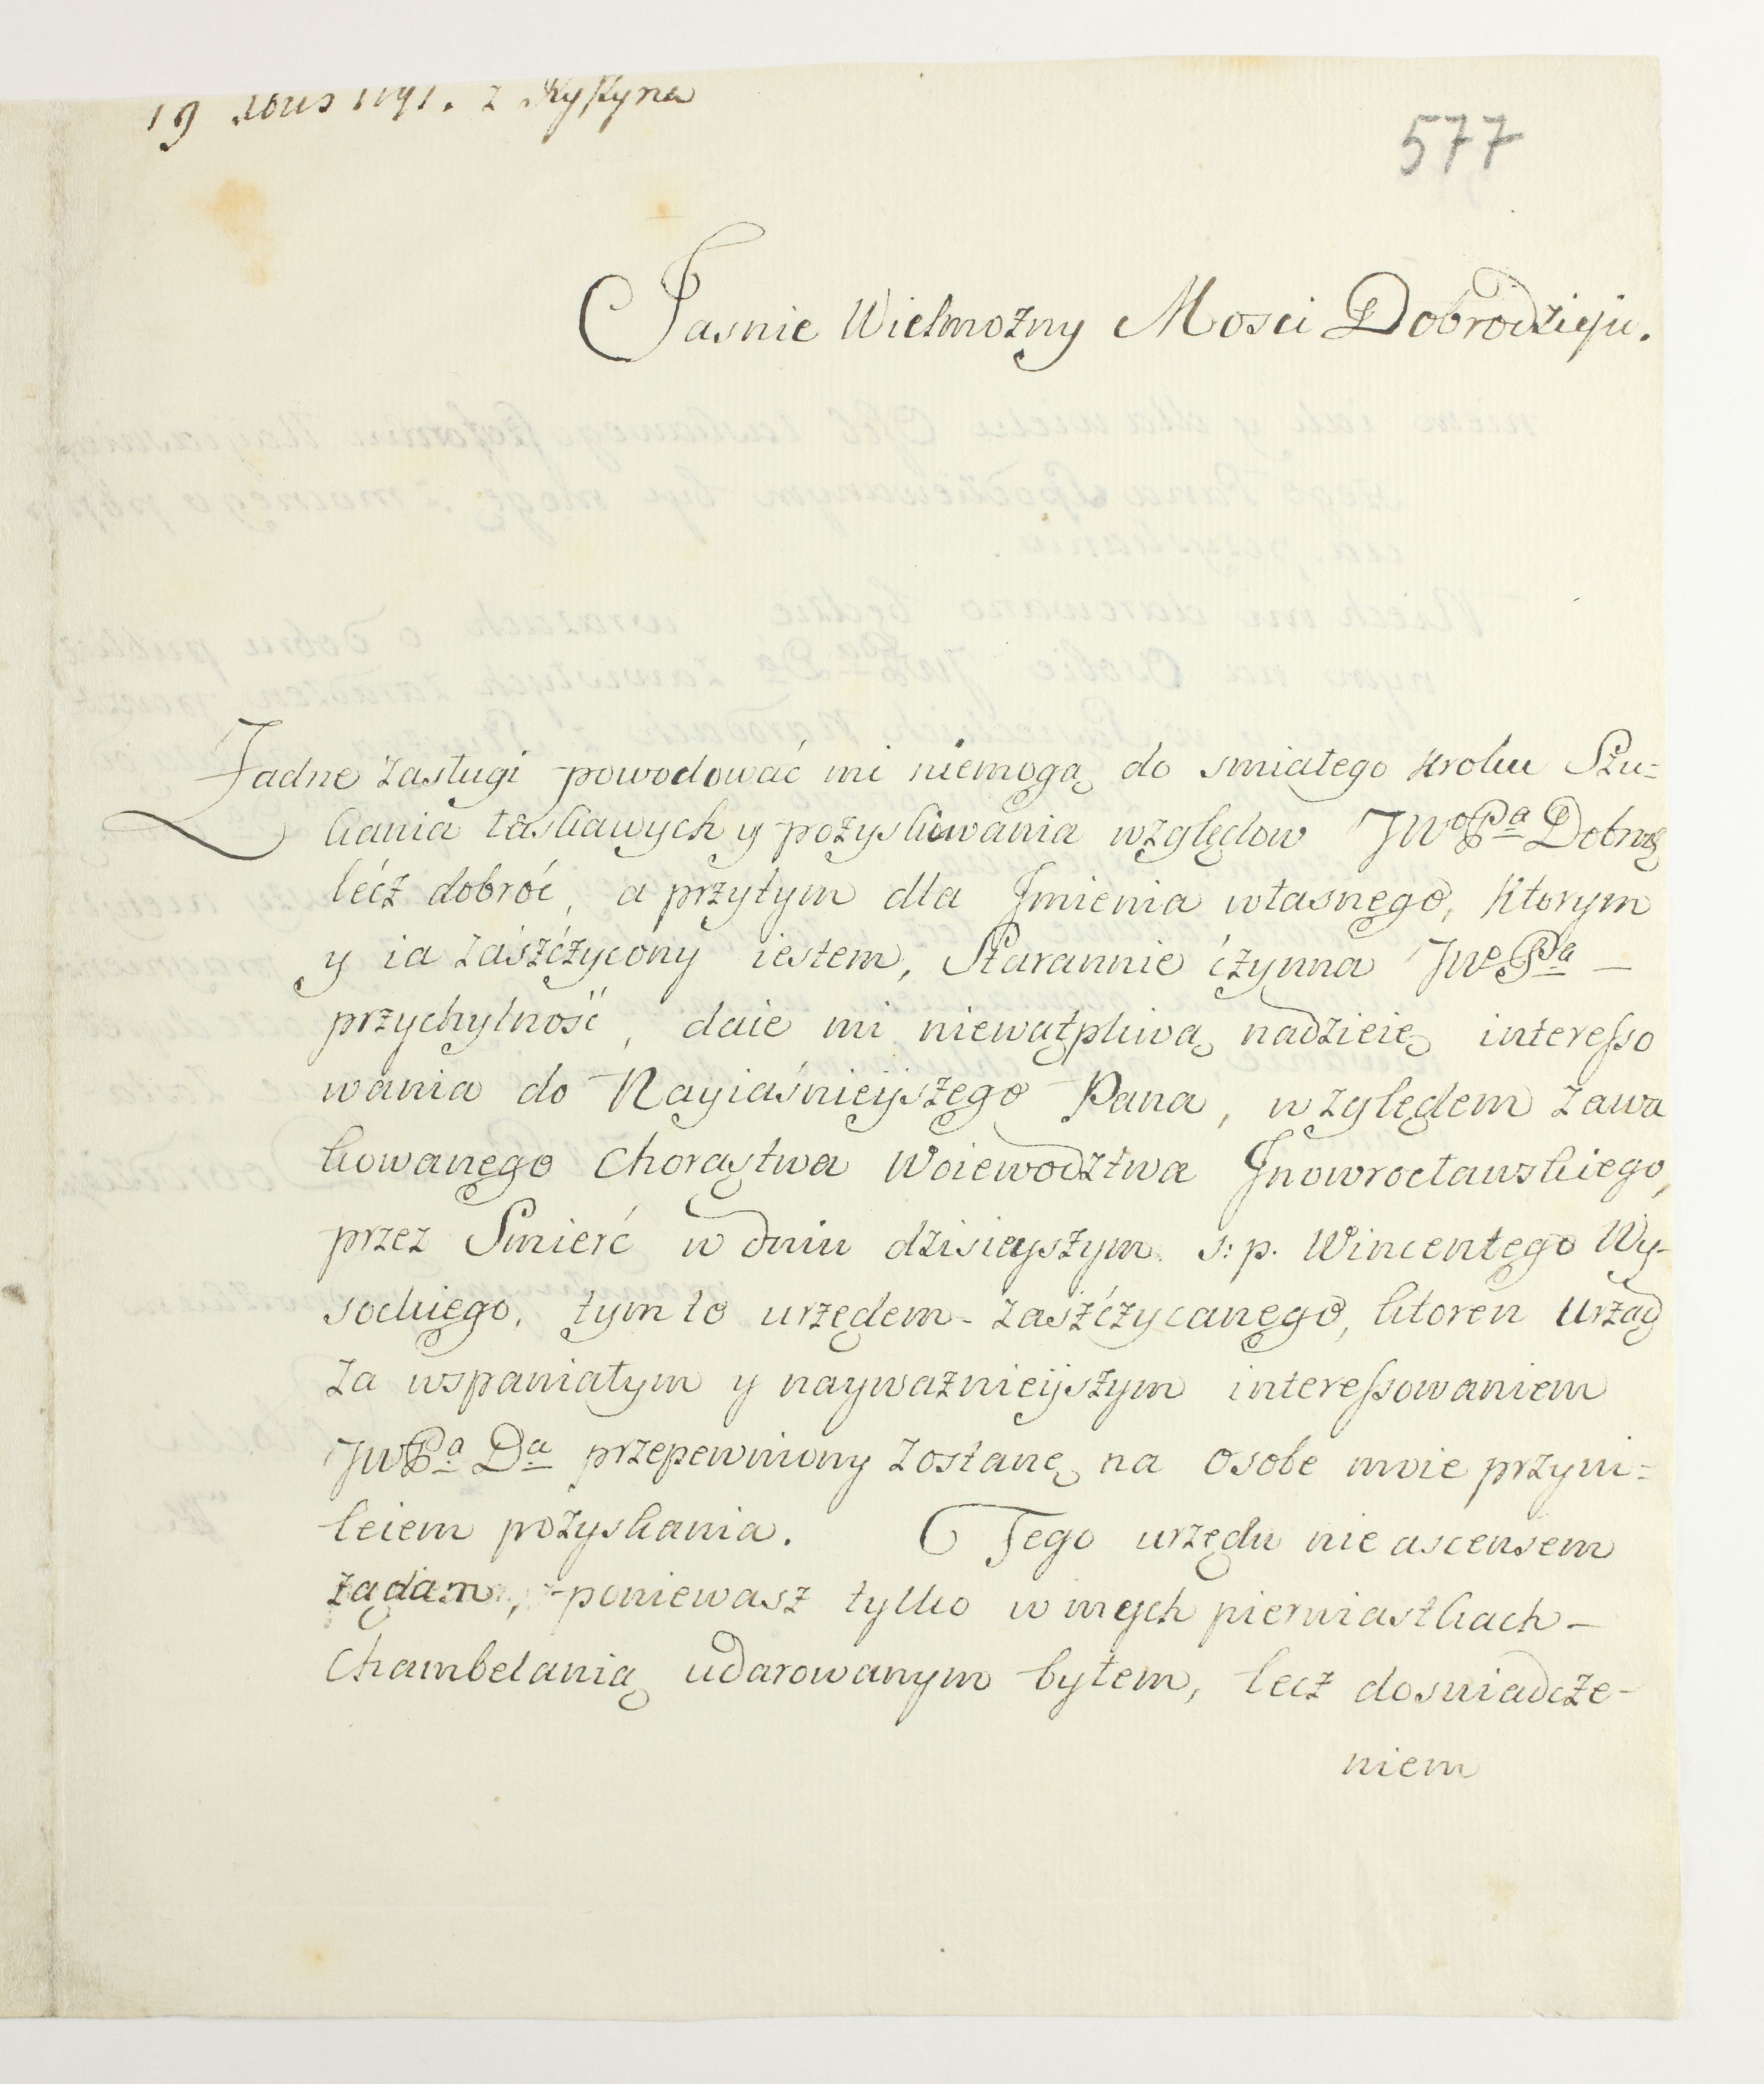 19 1791. z
577
Jasnie Wielmożny Mosci Dobrodzieju.
Żadne zasługi powodować mi niemogą do smiałego kroku Szu=
kania łaskawych y pozyskiwania względow JWo Pa Dobro
lećz dobróć, a przytym dla Jmienia własnego, ktorym
y ia zaśzćzycony iestem, Starannie ćzynna JWo Pa —
przychylność, daie mi niewątpliwą nadzieię interesso
wania do Nayiaśnieyszego Pana, względem zawa
kowanego Chorąstwa Woiewodztwa Jnowrocławskiego,
przez Smierć w dniu dzisieyszym s: p. Wincentego Wy-
sockiego, tym to urzędem - zaśzćzycanego, ktoren Urząd
za wspaniałym y nayważnieyszym interessowaniem
JWPa Da przepewniony zostanę na osobe moie przywi=
leiem pozyskania. Tego urzędu nie ascensem
żądam, poniewasz tylko w mych pierwiastkach —
Chambelanią udarowanym byłem, lecz doswiadcze-
niem